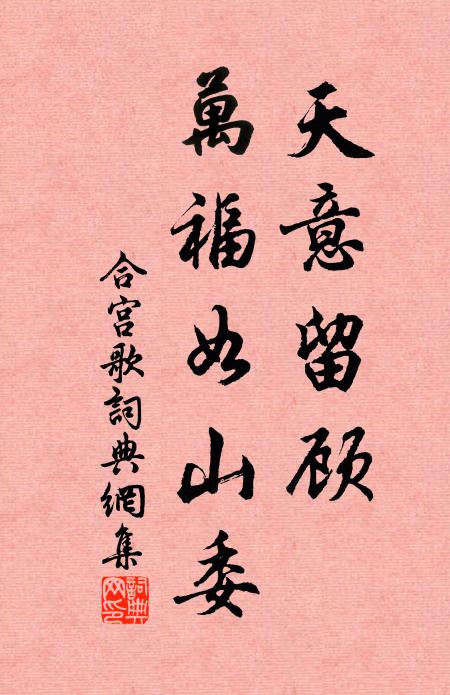 天意留顾
萬福如山委
合宫歌詞典網集
詞典网印